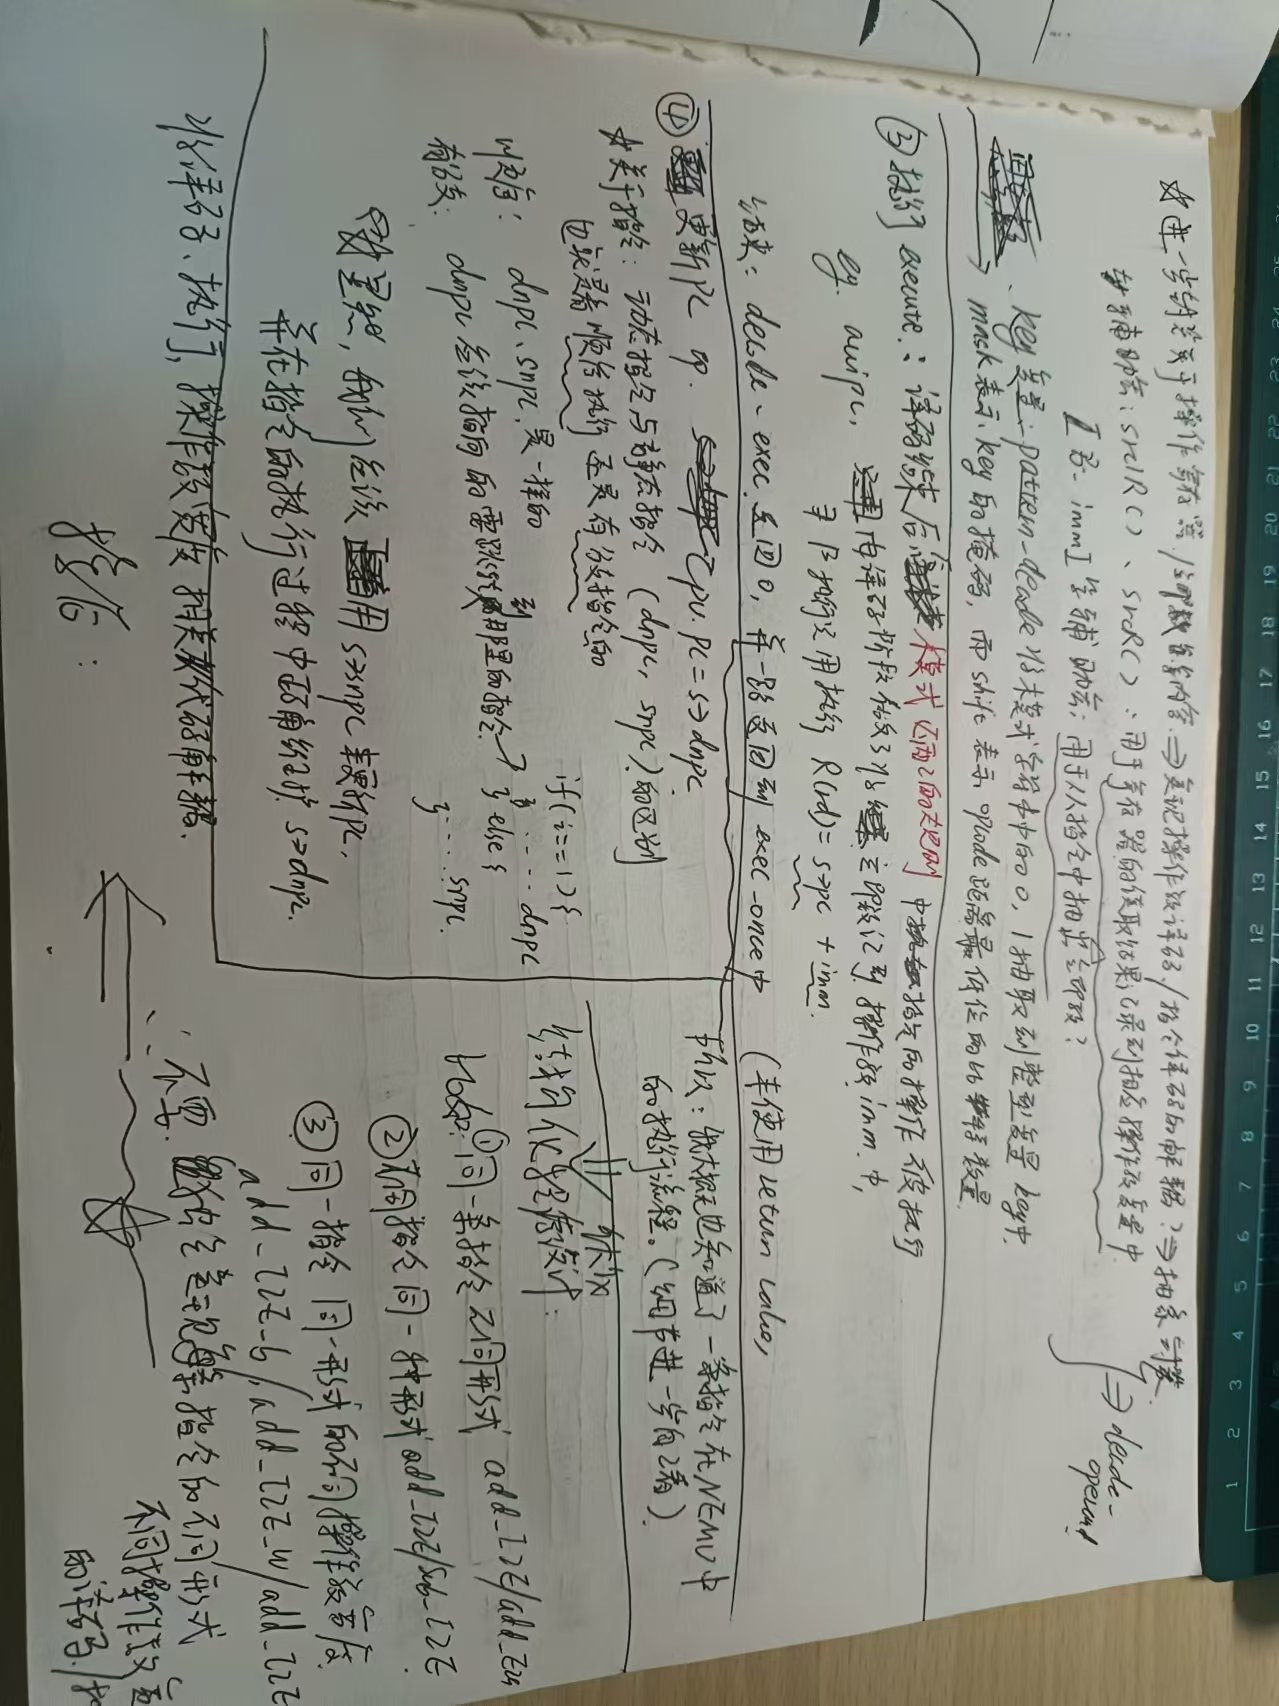 1 2 3 4 5 6 7 8 9 10 11 12 13 14 15 16 17 18 19 20 21 22 23 24
☆进一步封装关于操作寄存器/立即数等内容.⇒实现操作数译码/指令译码的解耦?⇒抽象封装
辅助宏: src1R()、srcR(): 用于寄存器的读取结果记录到相应操作数变量中
immI等辅助宏: 用于从指令中抽出立即数?
⇒ decode-operand
key变量: pattern-decode将模式字符串中的0,1抽取到整型变量key中,
mask表示key的掩码,而shift表示opcode距离最低位的比特数量.
③执行execute.: 译码结束后 模式匹配的规则 中指定的操作被执行
eg. auipc, 由译码阶段做了将立即数记到操作数imm中,
执行只用执行 R(rd)= s→pc + imm.
结束: decode-exec返回0,并一路返回到exec-once中 (未使用return value)
④更新PC cpu.pc = s→dnpc.
☆关于指令: 动态指令与静态指令 (dnpc, snpc)的区别
也就是看顺序执行还是有分支指令的
顺序: dnpc、snpc是一样的
有分支: dnpc应该指向的要跳转到那里的指令→
if(i==1){
..... dnpc
} else {
..... snpc.
}
☆显然,我们应该用s→snpc来更新PC,
并在指令的执行过程中正确维护s→dnpc.
所以: 我大概也知道了一条指令在NEMU中
的执行流程。(细节进一步自己看).
⇓ 优化
结构化程序设计:
比如:①同一条指令不同形式 add_I2E/add_E2G
②不同指令同一种形式 add_I2E/sub_I2E
③同一指令同一形式的不同操作数宽度
add_I2E_b/add_I2E_w/add_I2E
∴不要独个实现每条指令的不同形式
不同操作数宽
的译码/执
将译码、执行,操作数宽度相关代码解耦.
接着: